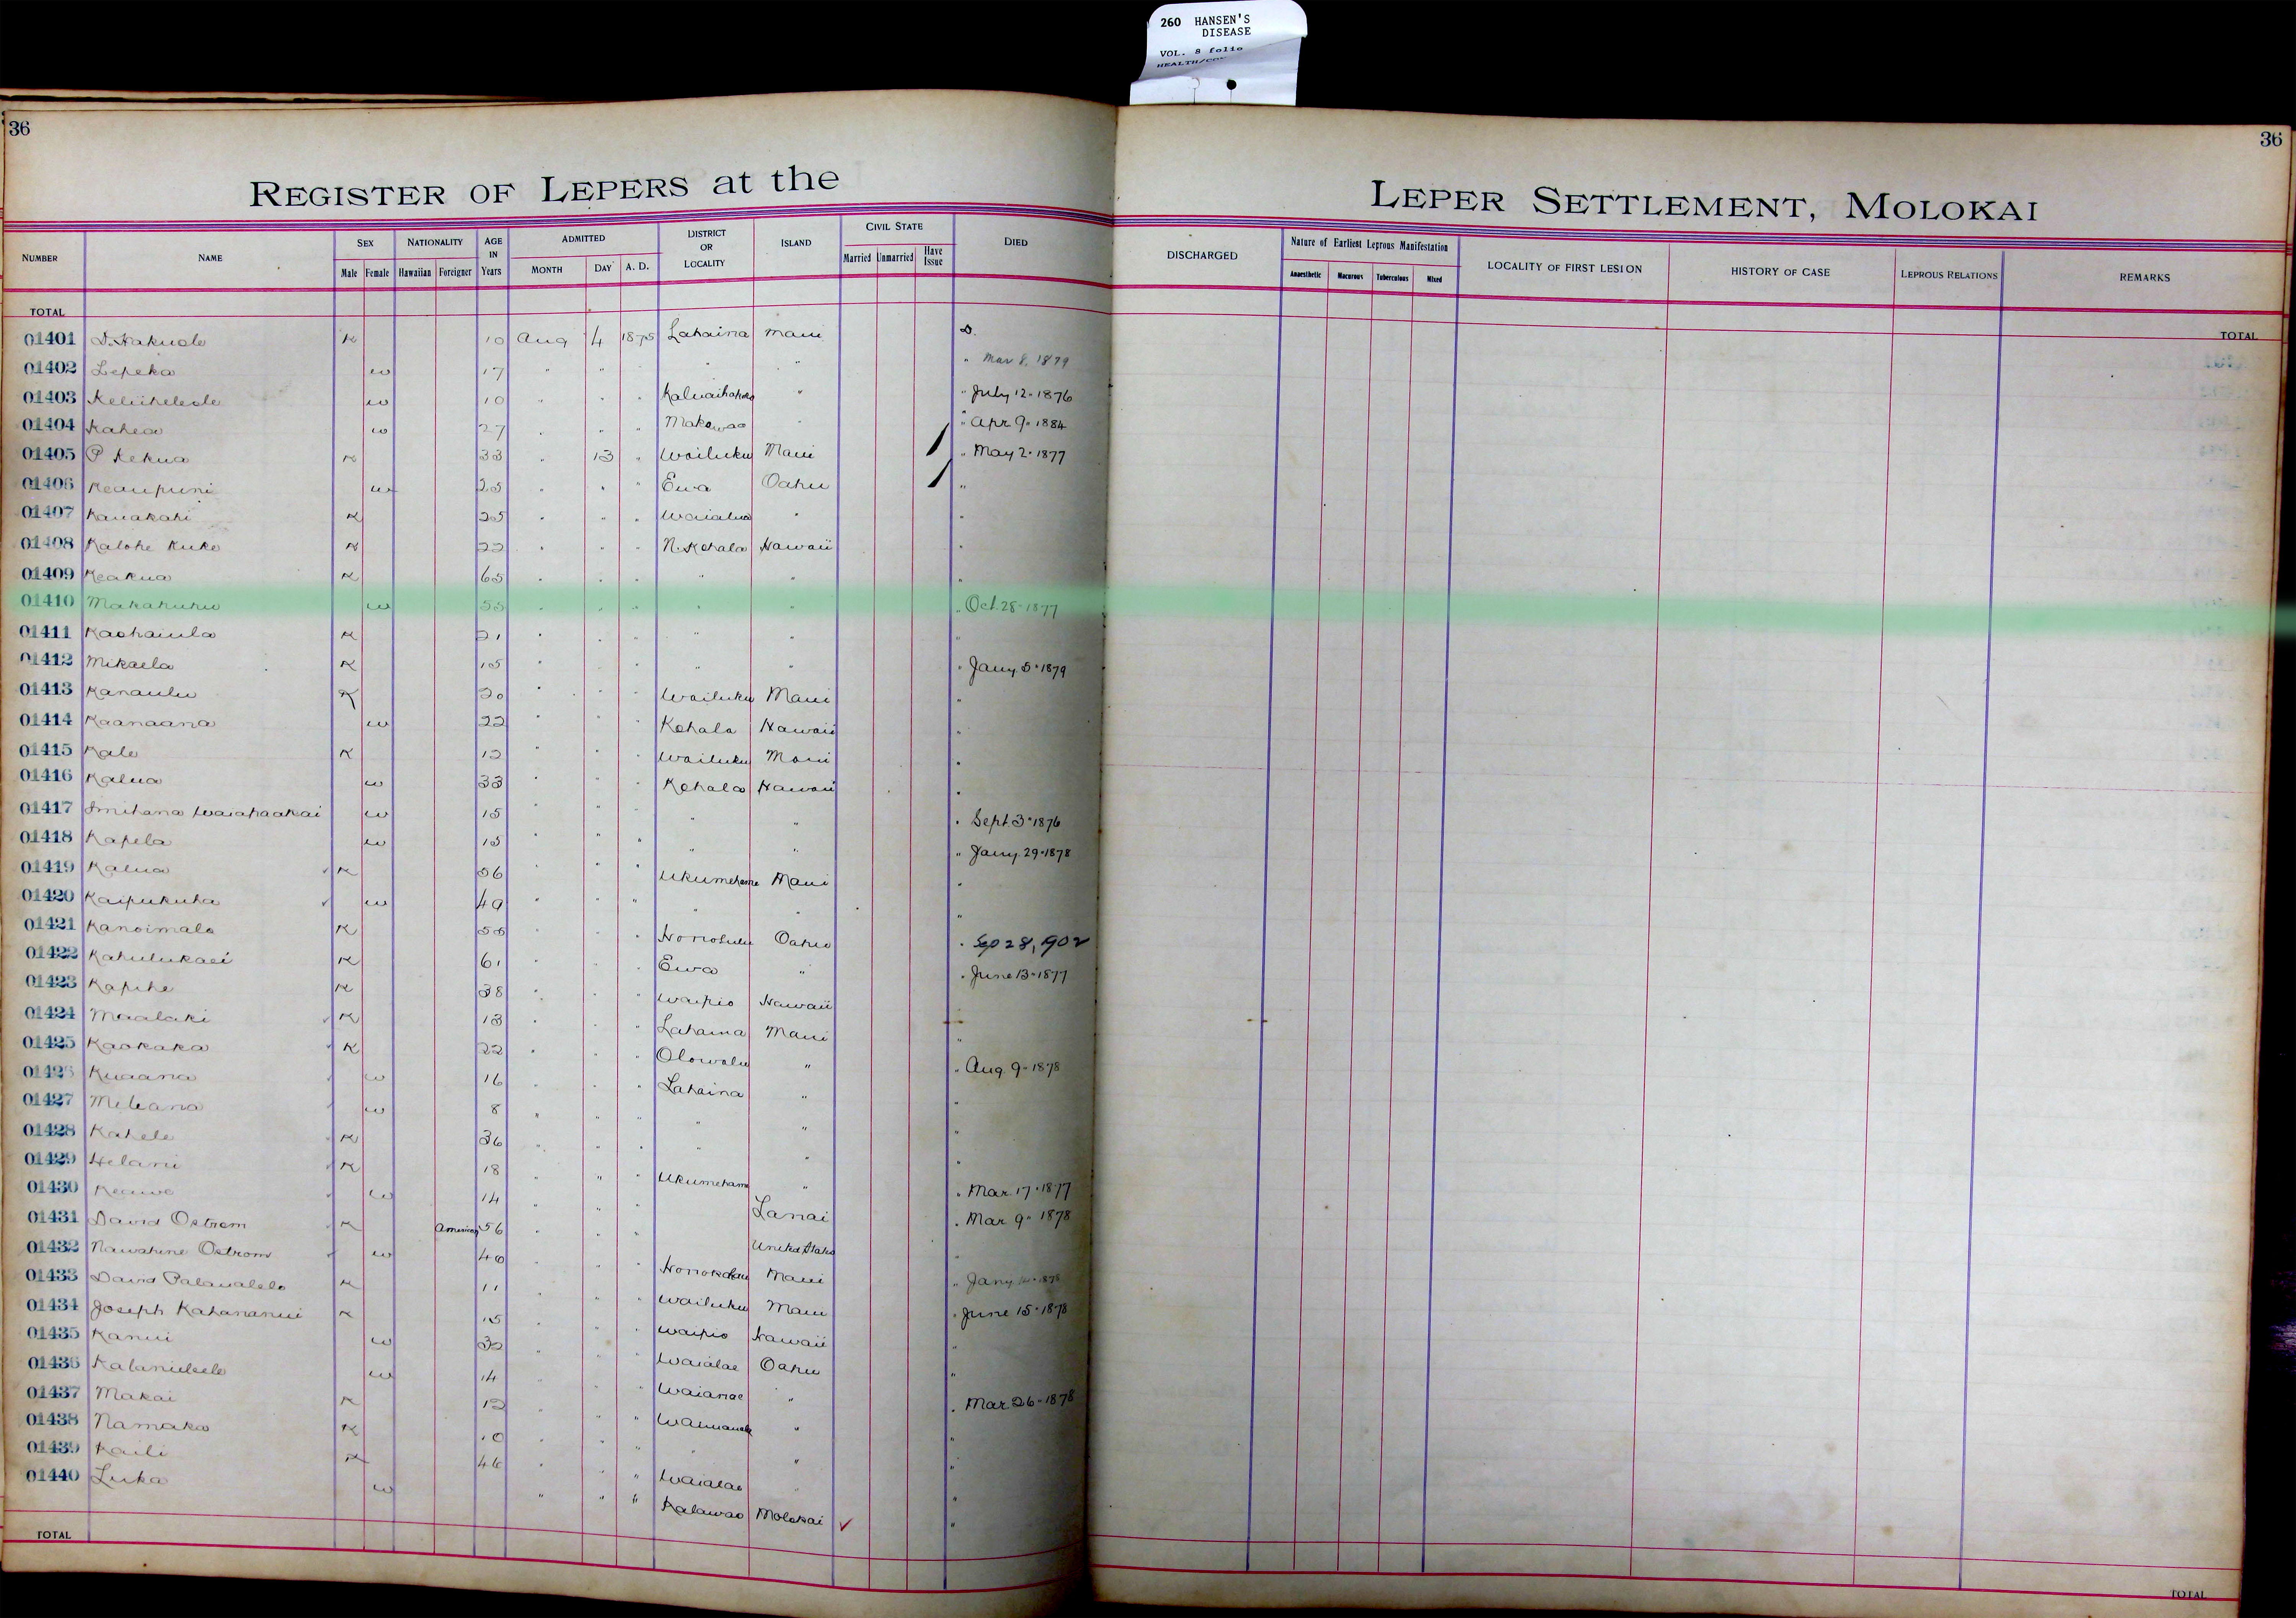 260 HANSEN'S
DISEASE
VOL. 8 folio
36
36
REGISTER OF LEPERS at the
LEPER SETTLEMENT, MOLOKAI
NUMBER NAME SEX Male Female NATIONALITY Hawaiian Foreigner AGE IN Years ADMITTED MONTH DAY A. D. DISTRICT OR LOCALITY ISLAND CIVIL STATE Married Unmarried Have Issue DIED
DISCHARGED Nature of Earliest Leprous Manifestation Anaesthetic Macurous Tuberculous Mixed LOCALITY OF FIRST LESION HISTORY OF CASE LEPROUS RELATIONS REMARKS
TOTAL
TOTAL
01401 D. Hakuole K 10 Aug 4 1875 Lahaina Maui D.
01402 Lepeka w 17 " " " " " " Mar 8, 1879
01403 Keliiheleole w 10 " " " " " July 12 - 1876
01404 Kahea w 27 " " " Makawao " " Apr 9 - 1884
01405 P Kekua K 33 " 13 " Wailuku Maui " May 2 - 1877
01406 Keaupuni w 25 " " " Ewa Oahu "
01407 Kauakahi K 25 " " " Waialua " "
01408 Kalohe Kuke K 22 " " " N. Kohala Hawaii "
01409 Keakua K 65 " " " " " "
01410 Makahuhu w 55 " " " " " " Oct. 28 - 1877
01411 Kaohaiula K 21 " " " " " "
01412 Mikaela K 15 " " " " " " Jany. 5 - 1879
01413 Kanaulu K 20 " " " Wailuku Maui "
01414 Kaanaana w 22 " " " Kohala Hawaii "
01415 Kale K 12 " " " Wailuku Maui "
01416 Kalua w 33 " " " Kohala Hawaii "
01417 Smitana Waiahaakai w 15 " " " " " " Sept. 3 - 1876
01418 Kapela w 15 " " " " " " Jany. 29 - 1878
01419 Kalua K 56 " " " Ukumehame Maui "
01420 Kaipukuha w 49 " " " " " "
01421 Kanoimalo K " " " Honolulu Oahu " Sep 28, 1902
01422 Kahulukaei K 61 " " " Ewa " " June 13 - 1877
01423 Kapihe K 38 " " " Waipio Hawaii
01424 Maalaki K 13 " " " Lahaina Maui "
01425 Kaokaka K 22 " " " Olowalu " " Aug. 9 - 1878
01426 Kuaana w 16 " " " Lahaina " "
01427 Meleana w 8 " " " " " "
01428 Kahele K 36 " " " " " "
01429 Helani K 18 " " " Ukumehame " " Mar. 17 - 1877
01430 Keawe w 14 " " " Lanai " Mar. 9 - 1878
01431 David Ostrom K American 56 " " " United States "
01432 Nawahine Ostrom w 40 " " " Honokohau Maui " Jany.
01433 David Palaualelo K 11 " " " Wailuku Maui " June 15 - 1878
01434 Joseph Kahananui K 15 " " " Waipio Hawaii "
01435 Kanui w 32 " " " Waialae Oahu "
01436 w 14 " " " Waianae " " Mar. 26 - 1878
01437 Makai K 12 " " " " "
01438 Namaka K 10 " " " " " "
01439 Kaili K 46 " " " Waialae " "
01440 Luka w " " " Kalawao Molokai ✓ "
TOTAL
TOTAL